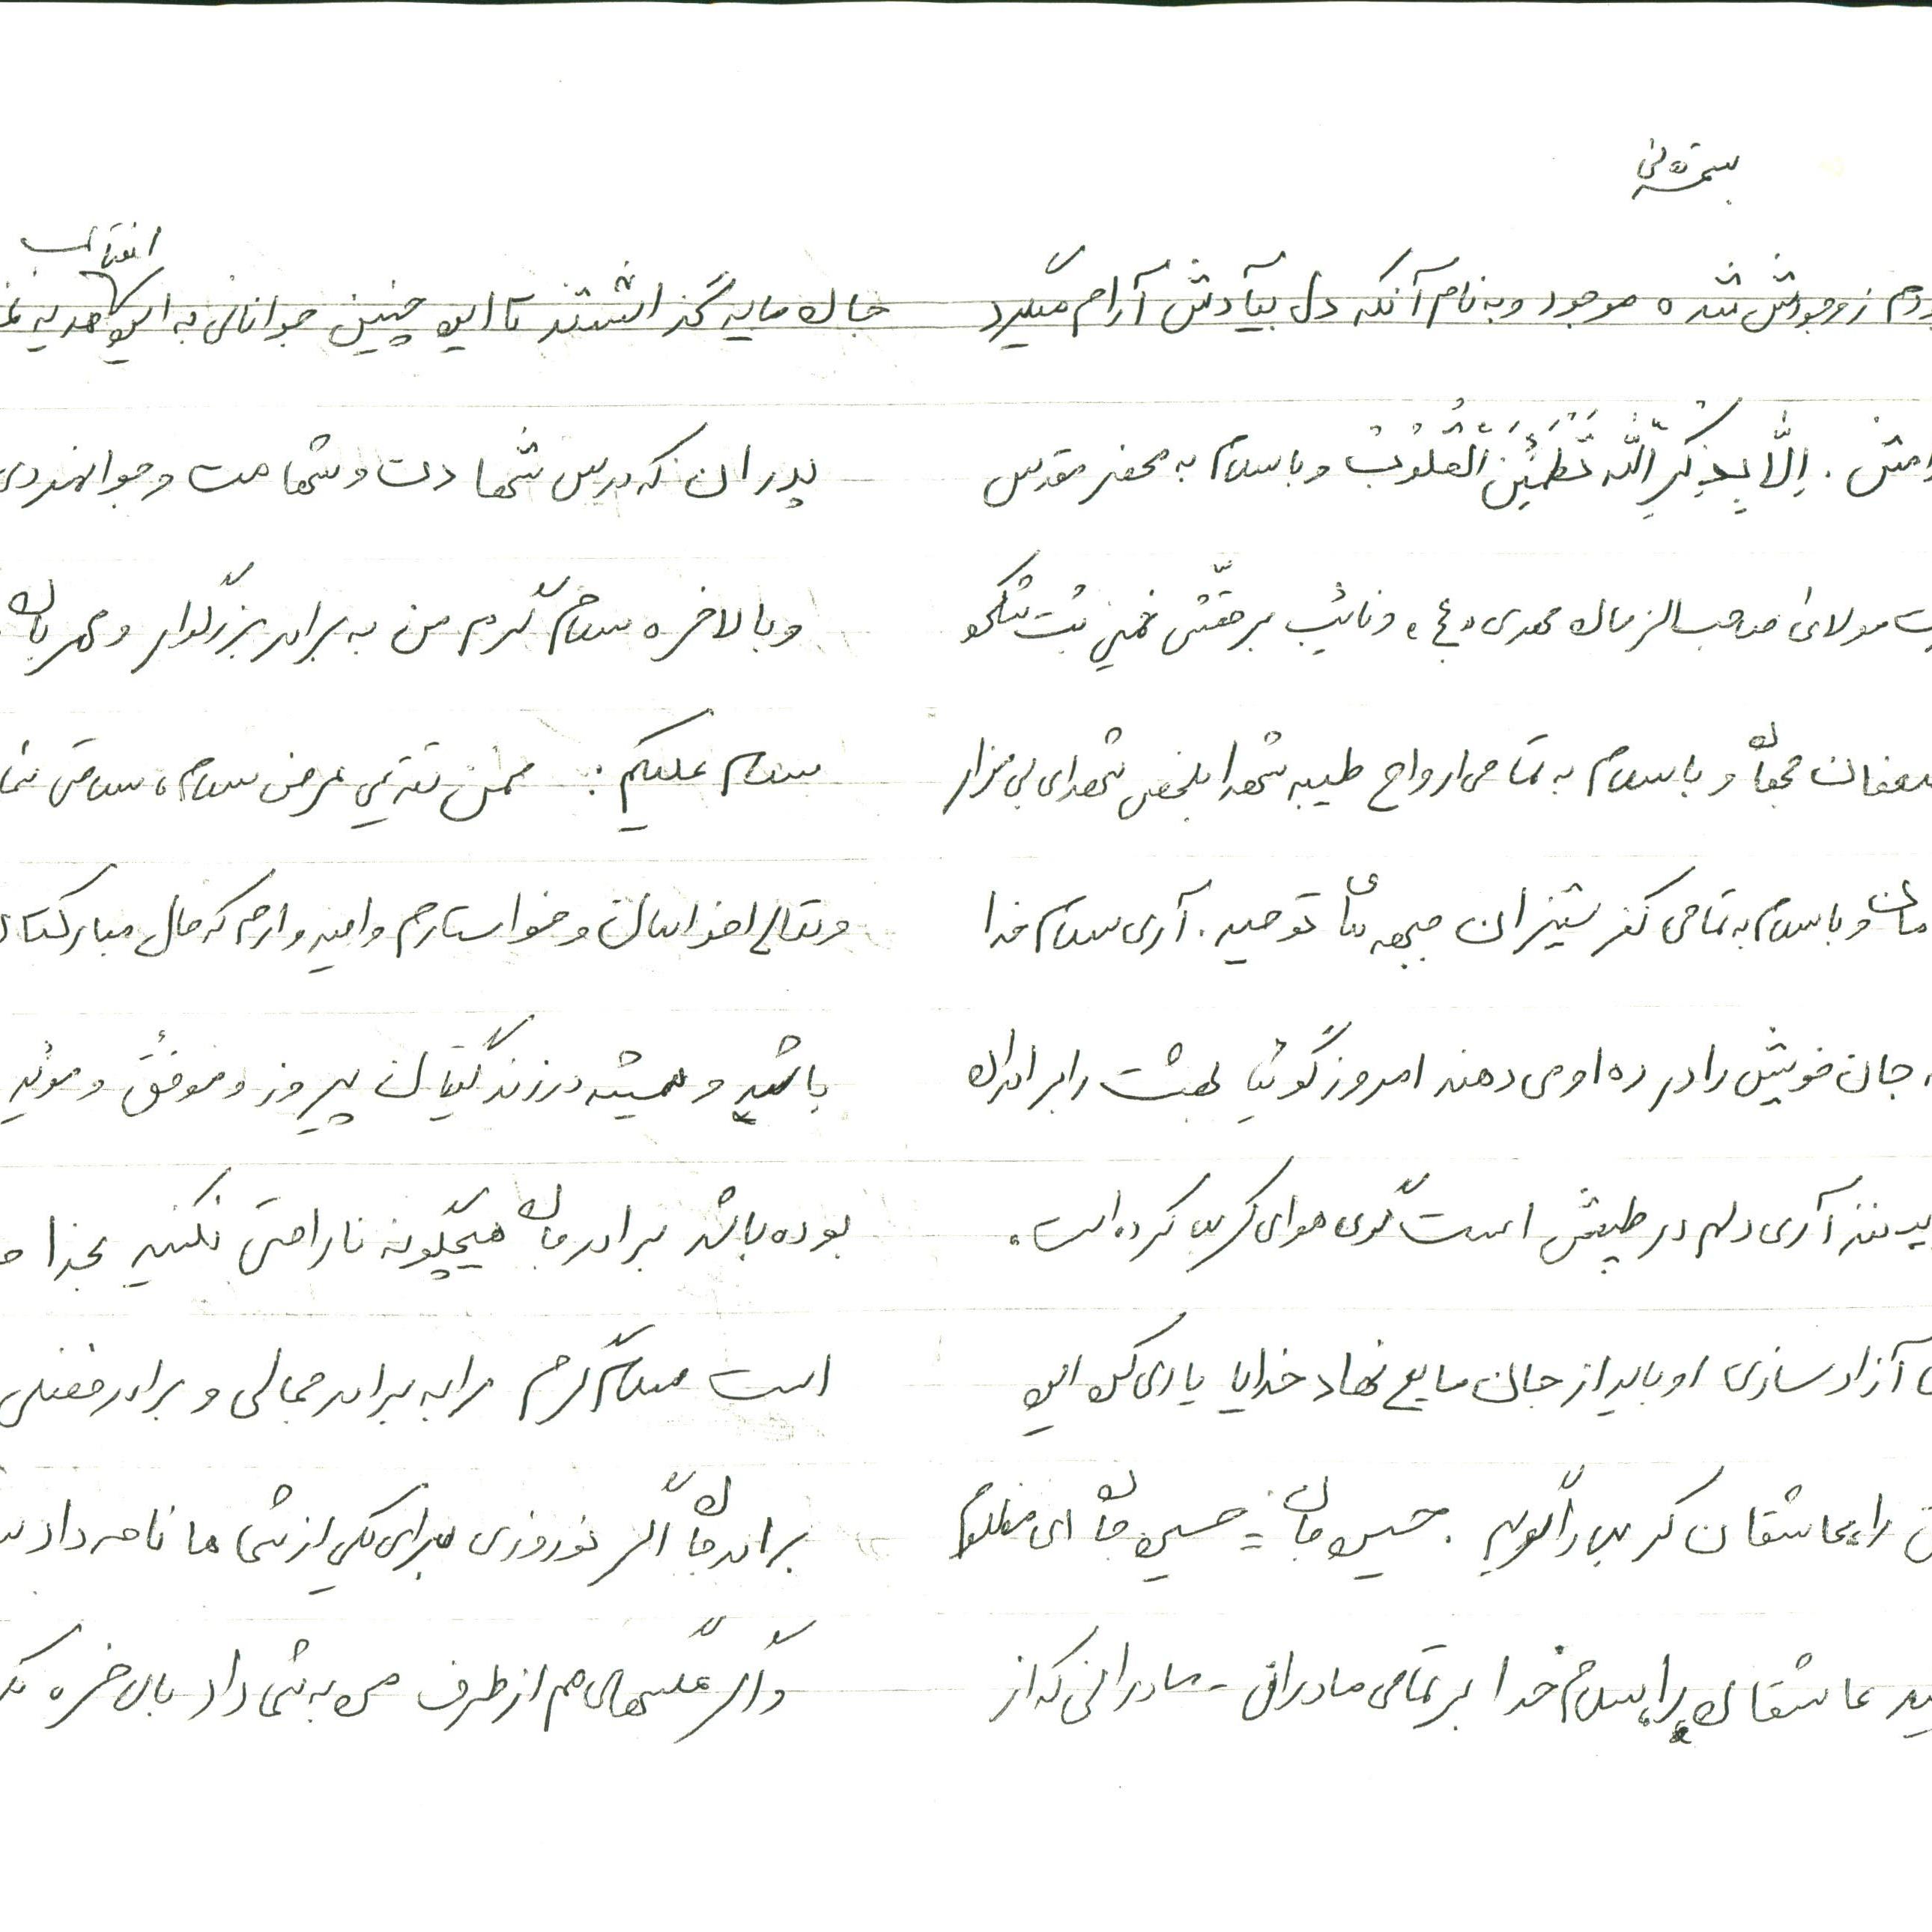 بسمه تعالی
زوجودش شده موجود و به نام آنکه دل بیادش آرام میگیرد
اِلّا بِذِکرِ اللّه تَطمَئِنَّ القُلُوب و با سلام به محضر مقدس
مولای صاحب الزمان مهدی «ع» و نائب برحقش خمینی بت شکن و
و با سلام به تمامی ارواح طیبه شهدا بلخص شهدای بی مزار
و با سلام به تمامی کفر ستیزان جبهه های توحید. آری سلام خدا
جان خویش را در ره او می دهند امروز گوئیا بهشت را برادران
آری دلم در طپش است گوی هوای کربلا کرده است.
آزاد سازی او باید از جان مایع نهاد خدایا یاری کن این
عاشقان کربلا را گوید. حسین جان - حسین جان ای مظلوم
عاشقان را سلام خدا بر تمامی مادران - مادرانی که از
جان مایه گذاشتند تا این چنین جوانانی به این انقلاب هدیه
پدران که درس شهادت و شهامت و جوانمردی
و بالاخره سلام گرم من به برادر بزرگوار و مهربان
سلام علیکم: ضمن تقدیم عرض سلام، سلامتی شما
و تعالی خواهان و خواستارم و امیدوارم که حال مبارکتان
باشد و همیشه در زندگیتان پیروز و موفق و موئید
بوده باشد برادر جان هیچگونه ناراحتی نکنید بخدا
است سلام گرم مرا به برادر جمالی و برادر فضلی
برادر جان اگر نوروزی برای یکی از شماها نامه داد
و اگر هم از طرف من به شما داد بالاخره